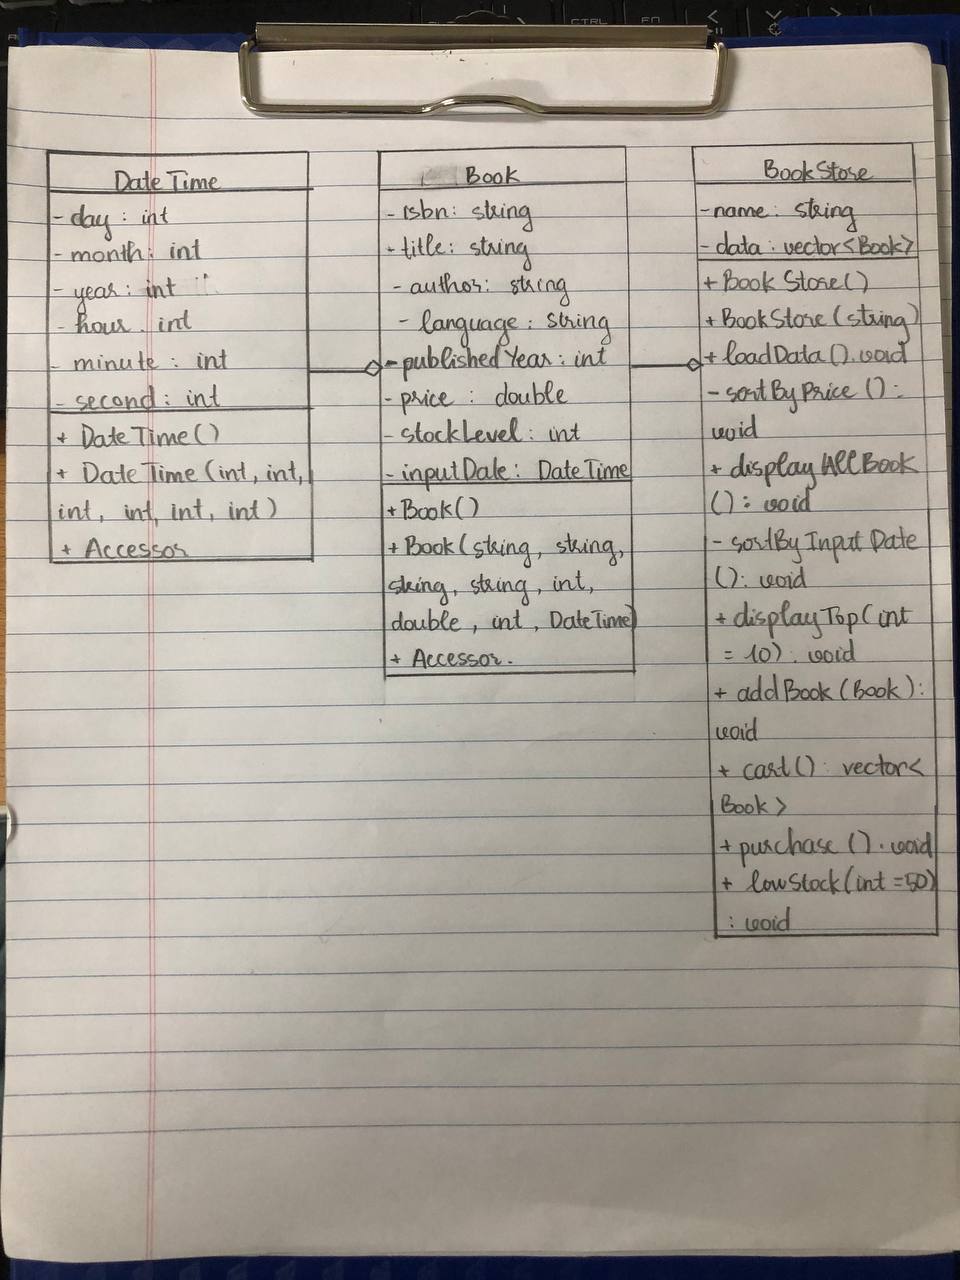 CTRL
FN
DateTime
- day : int
- month : int
- year : int
- hour . int
- minute : int
- second : int
+ DateTime()
+ DateTime (int, int,
int, int, int, int)
+ Accessor
Book
- isbn: string
- title: string
- author: string
- language : string
- published Year : int
- price : double
- stockLevel : int
- inputDate : DateTime
+ Book()
+ Book (string, string,
string, string, int,
double, int, DateTime)
+ Accessor.
BookStore
- name : string
- data : vector<Book>
+ Book Store()
+ BookStore (string)
+ loadData().void
- sortByPrice () :
void
+ displayAllBook
() : void
- sortByInputDate
() : void
+ displayTop(int
= 10) . void
+ addBook (Book) :
void
+ cart() : vector<
Book>
+ purchase () . void
+ lowStock (int = 50)
: void